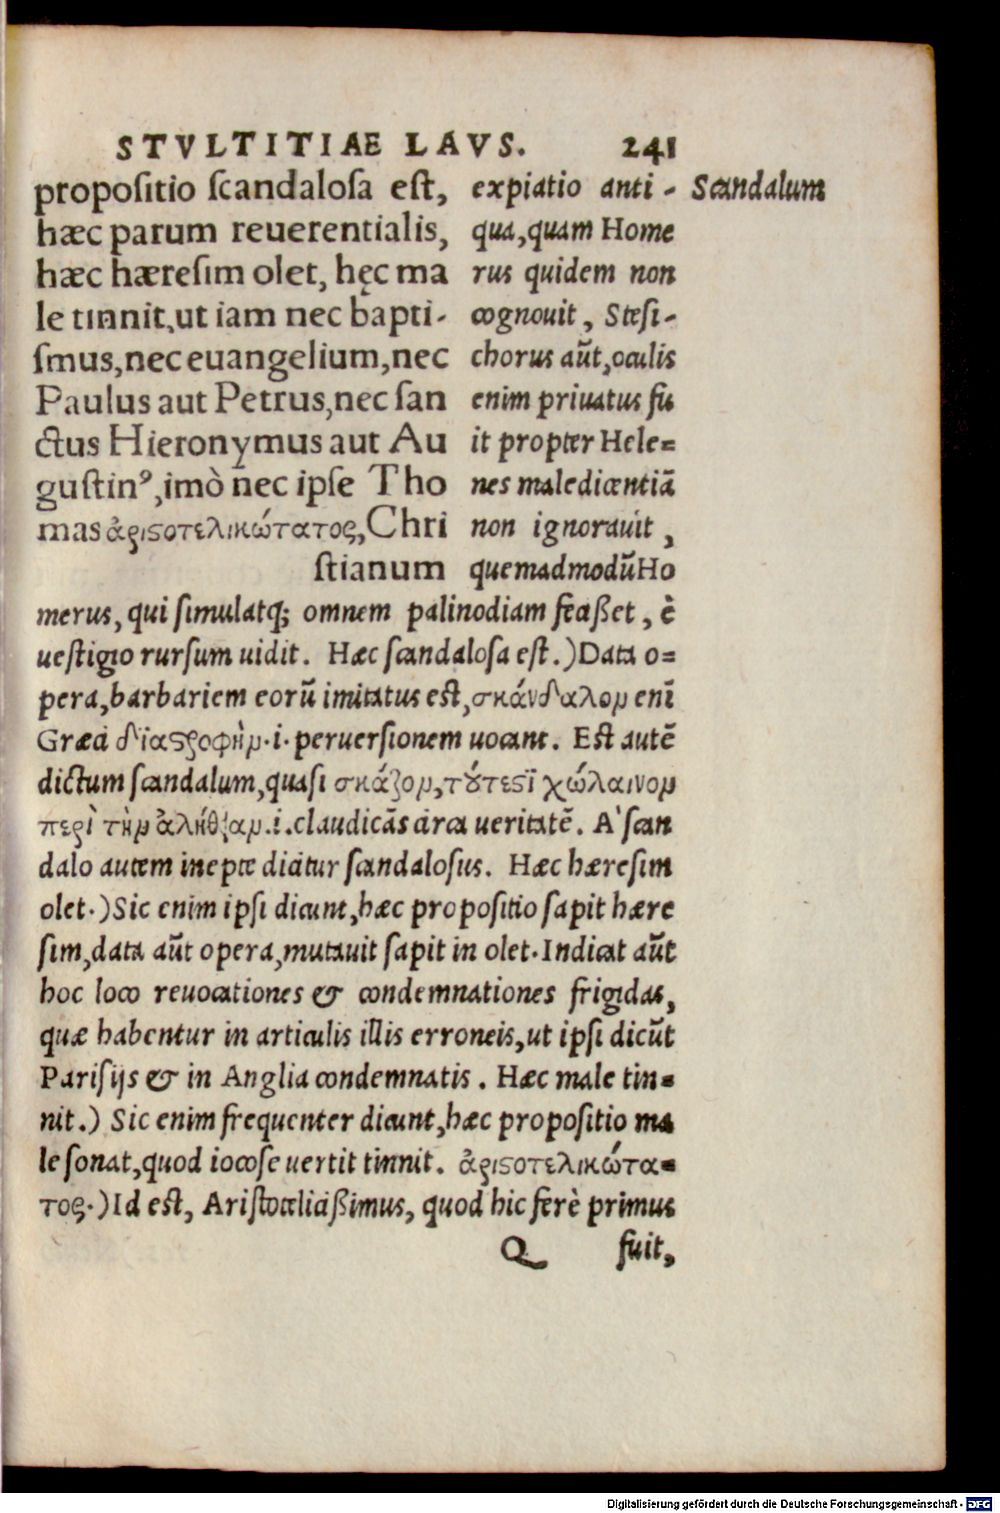 STVLTITIAE LAVS. 241
propositio scandalosa est,
hæc parum reuerentialis,
hæc hæresim olet, hęc ma
le tinnit, ut iam nec bapti-
smus, nec euangelium, nec
Paulus aut Petrus, nec san
ctus Hieronymus aut Au
gustinꝰ, imò nec ipse Tho
mas ἀριϛοτελικώτατος, Chri
stianum
expiatio anti-
qua, quam Home
rus quidem non
cognouit, Stesi-
chorus aũt, oculis
enim priuatus fu
it propter Hele=
nes maledicentiã
non ignorauit,
quemadmodũ Ho
Scandalum
merus, qui simulatq; omnem palinodiam fecißet, è
uestigio rursum uidit. Hæc scandalosa est.) Data o=
pera, barbariem eorũ imitatus est, σκάνδαλον enĩ
Græci διαϛροφὴν .i. peruersionem uocant. Est autẽ
dictum scandalum, quasi σκάζον, τȣ́τεϛϊ χώλαινον
περὶ τὴν ἀλήθϳαν .i. claudicãs circa ueritatẽ. A' scan
dalo autem inepte dicitur scandalosus. Hæc hæresim
olet.) Sic enim ipsi dicunt, hæc propositio sapit hære
sim, data aũt opera, mutauit sapit in olet. Indicat aũt
hoc loco reuocationes & condemnationes frigidas,
quæ habentur in articulis illis erroneis, ut ipsi dicũt
Parisijs & in Anglia condemnatis. Hæc male tin=
nit.) Sic enim frequenter dicunt, hæc propositio ma
le sonat, quod iocose uertit tinnit. ἀριϛοτελικώτα=
τος.) Id est, Aristotelicißimus, quod hic ferè primus
Q fuit,
Digitalisierung gefördert durch die Deutsche Forschungsgemeinschaft - DFG